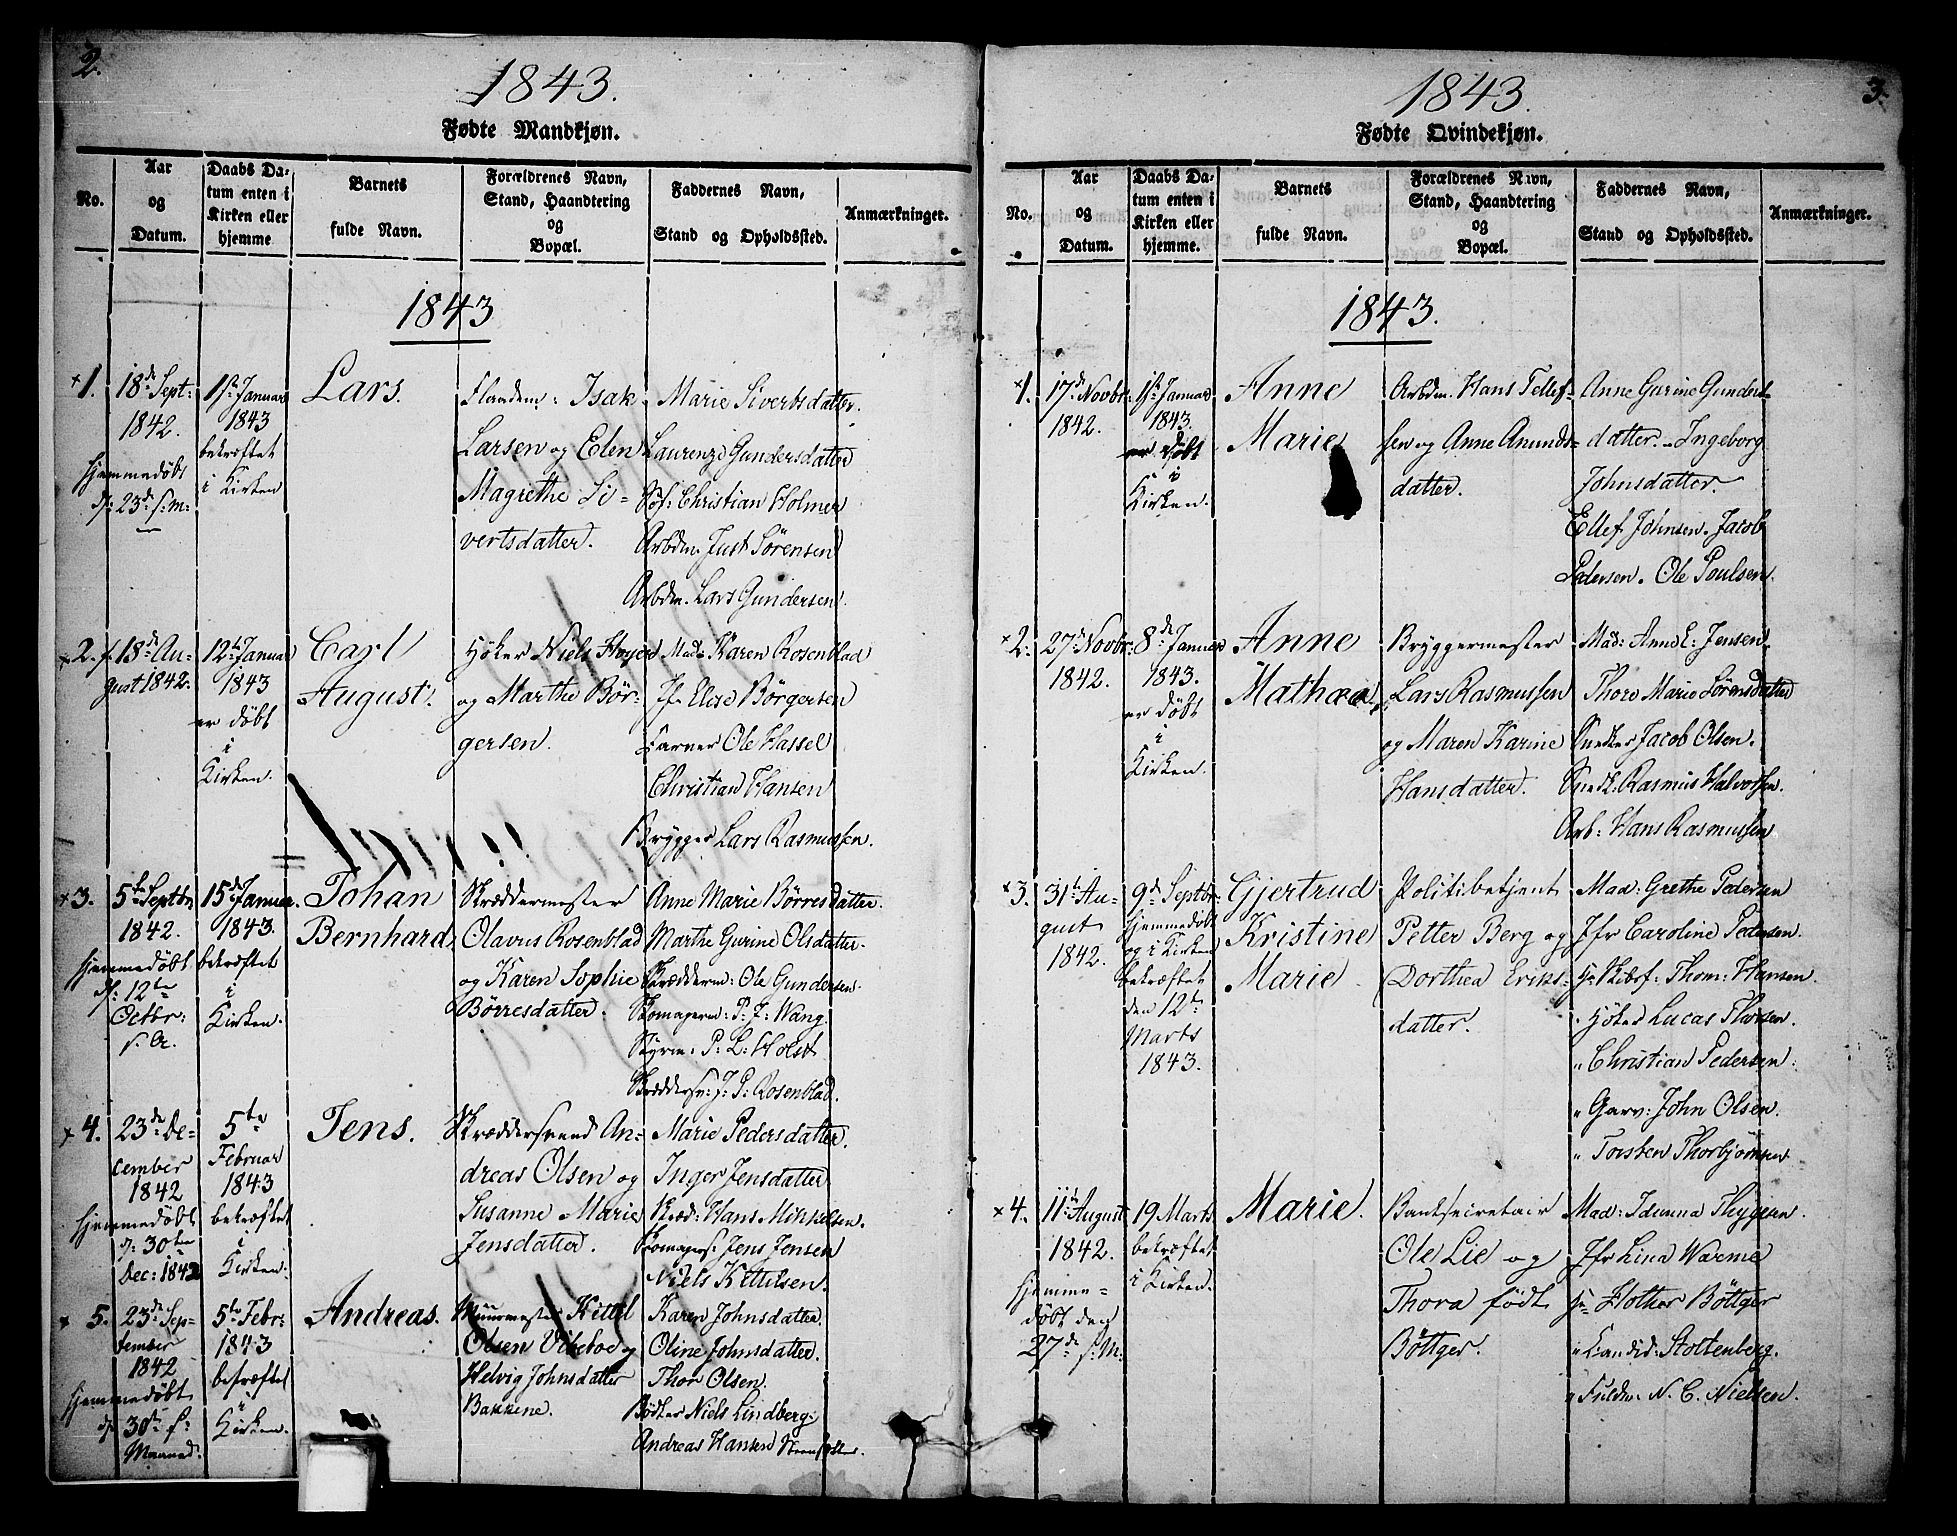 2.
1843.
Fødte Mandkjøn.
No.
Aar
og
Datum.
Daabs Da-
tum enten i
Kirken eller
hjemme
Barnets
fulde Navn.
Forældrenes Navn,
Stand, Haandtering
og
Bopæl.
Faddernes Navn,
Stand og Opholdssted.
Anmærkninger.
1843
×1.
18de Sept:
1842.
hjemmedøbt
d: 23de s: m:
1ste Januar
1843
bekræftet
i Kirken
Lars.
Isak
Larsen og Elen
Magrethe Si=
vertsdatter.
Marie Sivertsdatter.
Laurenze Gundersdatter
Søf: Christian Holmer
Arbdm. Just Sørensen
Arbdm. Lars Gundersen.
×2.
18de Au-
gust 1842.
12te Januar
1843
er døbt
i
Kirken.
Carl
August.
Høker Niels Høyer
og Marthe Bör-
gersen.
Mad: Karen Rosenblad
Jfr Elise Börgersen
Farver Ole Hassel
Christian Hansen
Brygger Lars Rasmussen.
×3.
5te Septbr
1842.
hjemmedøbt
d: 12te
Octbr:
s. A.
15de Januar.
1843.
bekræftet
i
Kirken.
Johan
Bernhard
Skræddermester
Olavus Rosenblad
og Karen Sophie
Börresdatter.
Anne Marie Börresdatter.
Marthe Gurine Olsdatter.
Skrædderm: Ole Gundersen.
Skomagerm: P: J: Wang.
Styrm: P: L: Holst
Skræddersv: J: P: Rosenblad.
×4.
23de De-
cember
1842
hjemmedøbt
d: 30te
Dec: 1842
5te
Februar
1843
bekræftet
i
Kirken.
Jens.
Skræddersvend An=
dreas Olsen og
Susanne Marie
Jensdatter.
Marie Pedersdatter.
Inger Jensdatter
Skræd: Hans Mikkelsen.
Skomagers: Jens Jensen
Niels Kittilsen.
× 5.
23de Sep-
tember
1842
hjemmedøbt
d: 30te s:
Maaned.
5te Febr:
1843
bekræftet
i
Kirken.
Andreas.
Muurmester Kittil
Olsen Vibeto og
Helvig Johnsdatter
Bakkene.
Karen Johnsdatter.
Oline Johnsdatter.
Thor Olsen.
Bødker Niels Lindberg:
Andreas Hansen
3.
1843.
Fødte Qvindekjøn.
No.
Aar
og
Datum.
Daabs Da-
tum enten i
Kirken eller
hjemme.
Barnets
fulde Navn.
Forældrenes Navn,
Stand, Haandtering
og
Bopæl.
Faddernes Navn,
Stand og Opholdssted.
Anmærkninger.
1843.
×1.
17de Novbr:
1842.
1ste Januar
1843.
er døbt
i
Kirken.
Anne
Marie
Arbdm. Hans Tellef-
sen og Anne Anunds-
datter.
Anne Gurine Gunders-
datter. Ingeborg
Johnsdatter.
Ellef Johnsen. Jacob
Pedersen. Ole Poulsen.
×2.
27de Novbr:
1842.
8de Januar
1843.
er døbt
i
Kirken.
Anne
Mathea.
Bryggermester
Lars Rasmussen
og Maren Karine
Hansdatter.
Mad: Anne L: Jensen.
Thore Marie Sörensdatter
Snedker Jacob Olsen.
Snedk: Rasmus Halvorsen.
Arb: Hans Rasmussen
×3.
31te Au-
gust
1842.
9de Septbr:
hjemmedøbt
og i Kirken
bekræftet
den 12te
Marts
1843.
Gjertrud
Kristine
Marie.
Politibetjent
Petter Berg og
Dorthea Eriks-
datter.
Mad: Grethe Pedersen
Jfr Caroline Pedersen.
Hr Skibsf: Thom: Hansen.
" Høker Lucas Thorsen.
" Christian Pedersen.
" Garv: John Olsen.
" Torsten Thorbjørnsen
×4.
11te August
1842.
hjemme=
døbt den
27de s: M:
19 Marts
bekræftet
i Kirken.
Marie.
Banksecretair
Ole Lie og
Thora født
Böttger.
Mad: Idunna Thygesen.
Jfr Lina Warme
Hr Hother Böttger
" Candid: Stoltenberg.
" Fuldm: N. C. Nielsen.